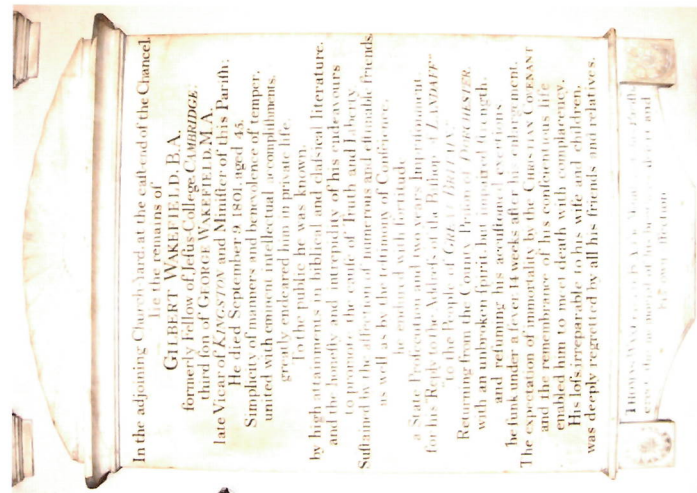 In the adjoining Church Yard, at the eaſt end of the Chancel,
lie the remains of
GILBERT WAKEFIELD, B.A.
formerly Fellow of Jeſus College CAMBRIDGE:
third ſon of GEORGE WAKEFIELD, M.A.
late Vicar of KINGSTON and Miniſter of this Pariſh:
He died September 9, 1801, aged 45.
Simplicity of manners and benevolence of temper,
united with eminent intellectual accompliſhments,
greatly endeared him in private life.
To the public he was known,
by high attainments in biblical and claſsical literature,
and the honeſty and intrepidity of his endeavours
to promote the cauſe of Truth and Liberty
Suſtained by the affection of numerous and eſtimable friends,
as well as by the teſtimony of Conſcience,
he endured with fortitude
a State Proſecution and two years Impriſonment
for his Reply to the Addreſs of the Biſhop of LANDAFF
"to the People of GREAT BRITAIN"
Returning from the County Priſon of DORCHESTER,
with an unbroken ſpirit, but impaired ſtrength,
and reſuming his accuſtomed exertions
he ſunk under a fever 14 weeks after his enlargement.
The expectation of immortality by the CHRISTIAN COVENANT
and the remembrance of his conſcientious life
enabled him to meet death with complacency.
His loſs, irreparable to his wife and children,
was deeply regretted by all his friends and relatives.
THOMAS WAKEFIELD
erect this memorial of his and